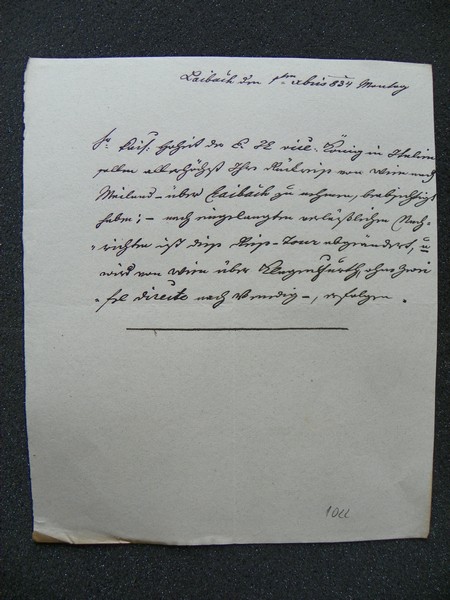 Laibach den 1ten xbris 834 Montag
Se. Kais: Hoheit der E. H. vice: König in Italien
sollen allerhöchst Ihre Rückreise von Wien nach
Meiland – über Laibach zu nehmen, beabsichtigt
haben; – nach eingelangten verläßlichen Nach-
richten ist diese Reise-Tour abgeändert, u
wird von Wien über Klagenfurth, ohne Zwei
fel directe nach Venedig –, erfolgen.
1011